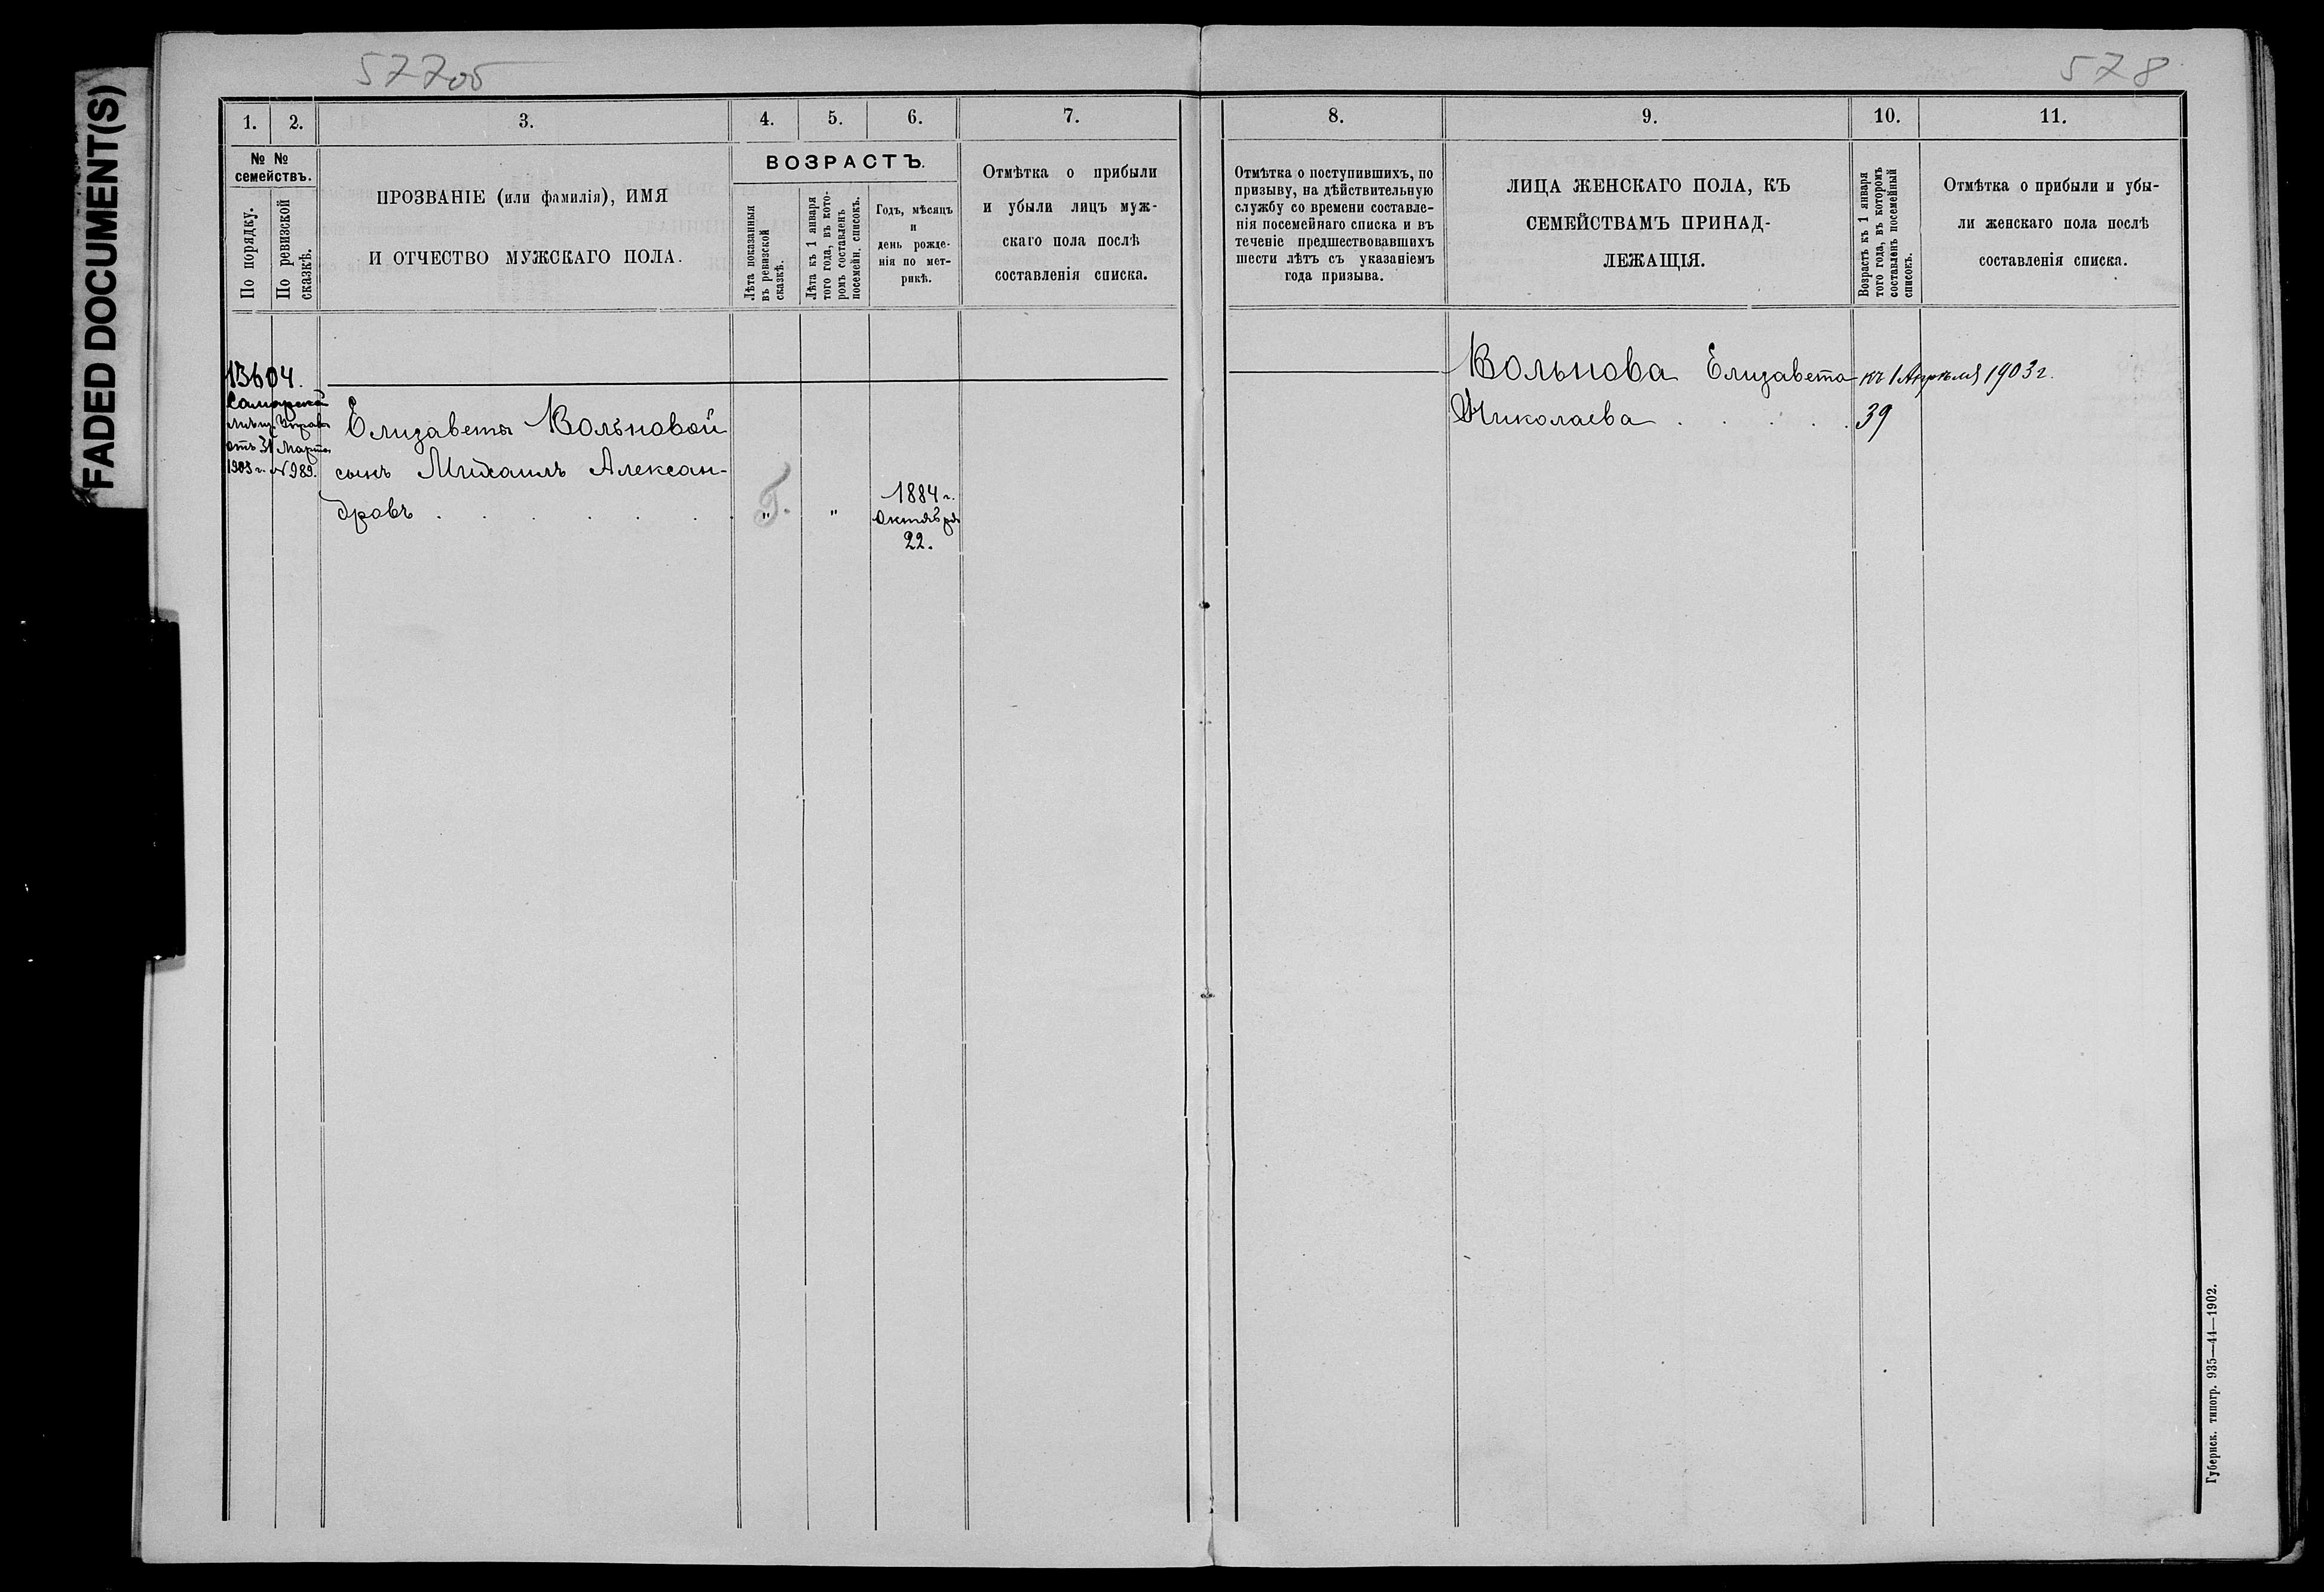 FADED DOCUMENT(S)
577об
578
1.
2.
3.
4.
5.
6.
7.
№ №
семействъ.
По порядку.
По ревизской
сказкѣ.
ПРОЗВАНІЕ (или фамилія), ИМЯ
И ОТЧЕСТВО МУЖСКАГО ПОЛА.
ВОЗРАСТЪ.
Лѣта показанныя
въ ревизской
сказкѣ.
Лѣта къ 1 января
того года, въ кото-
ромъ составленъ
посемейн. списокъ.
Годъ, мѣсяцъ
и
день рожде-
нія по мет-
рикѣ.
Отмѣтка о прибыли
и убыли лицъ муж-
скаго пола послѣ
составленія списка.
13604.
Самарской
мѣщ. Управы
отъ 31 Марта
1903 г. № 989.
Елизаветы Вольновой
сынъ Михаилъ Алексан-
дровъ . . . . . . „ „
1884 г.
Октября
22.
8.
9.
10.
11.
Отмѣтка о поступившихъ, по
призыву, на дѣйствительную
службу со времени составле-
нія посемейнаго списка и въ
теченіе предшествовавшихъ
шести лѣтъ съ указаніемъ
года призыва.
ЛИЦА ЖЕНСКАГО ПОЛА, КЪ
СЕМЕЙСТВАМЪ ПРИНАД-
ЛЕЖАЩІЯ.
Возрастъ къ 1 января
того года, въ которомъ
составленъ посемейный
списокъ.
Отмѣтка о прибыли и убы-
ли женскаго пола послѣ
составленія списка.
Вольнова Елизавета къ 1 Апрѣля 1903 г.
Николаева . . . . . 39
Губернск. типогр. 935—44—1902.